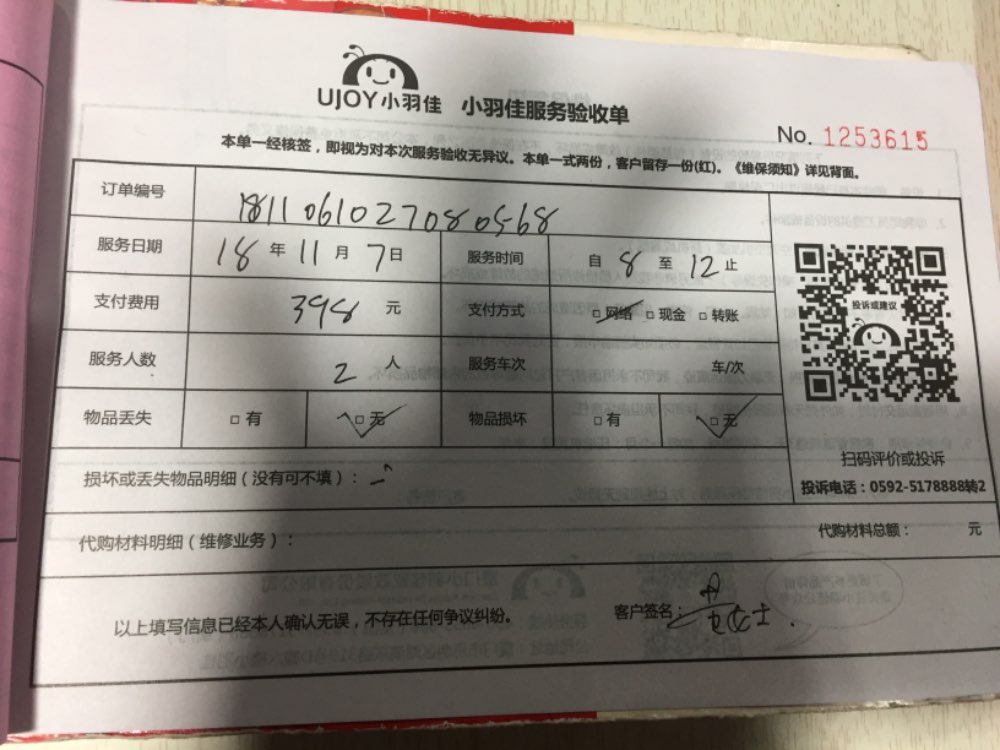 UJOY小羽佳 小羽佳服务验收单
No. 1253615
本单一经核签，即视为对本次服务验收无异议。本单一式两份，客户留存一份(红)。《维保须知》详见背面。
订单编号 1811061027080568
服务日期 18 年 11 月 7 日 服务时间 自 8 至 12 止
支付费用 398 元 支付方式 □网络 □现金 □转账
服务人数 2 人 服务车次 车/次
物品丢失 □有 □无 物品损坏 □有 □无
投诉或建议
扫码评价或投诉
投诉电话：0592-5178888转2
损坏或丢失物品明细（没有可不填）：
代购材料明细（维修业务）：
代购材料总额： 元
以上填写信息已经本人确认无误，不存在任何争议纠纷。
客户签名：